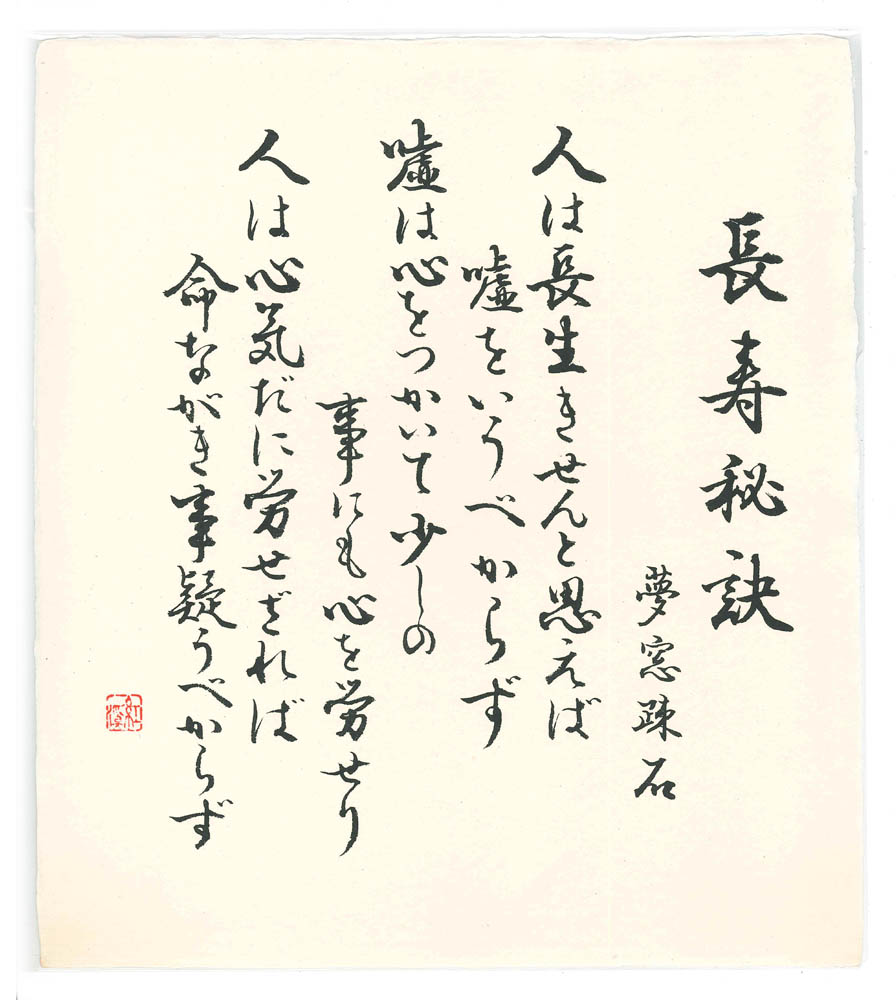 長寿秘訣
夢窓疎石
人は長生きせんと思えば
嘘をいうべからず
嘘は心をつかいて少しの
事にも心を労せり
人は心気だに労せざれば
命ながき事疑うべからず